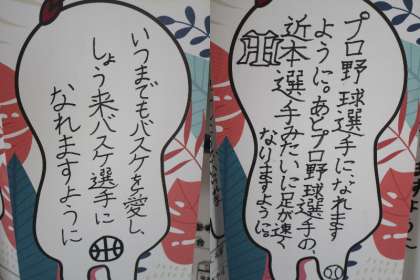 いつまでもバスケを愛し、
しょう来バスケ選手に
なれますように
プロ野球選手に、なれます
ように。あとプロ野球選手の、
近本選手みたいに足が速く
なりますように。